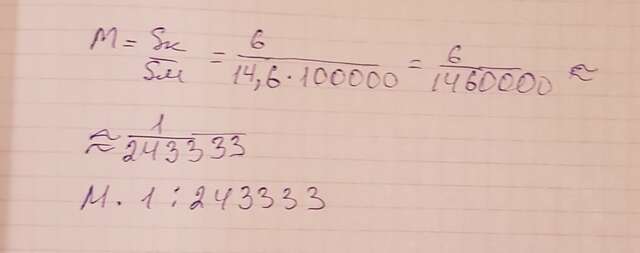 М = Sк/Sм = 6/14,6·100000 = 6/1460000 ≈
≈ 1/243333
М. 1 : 243333